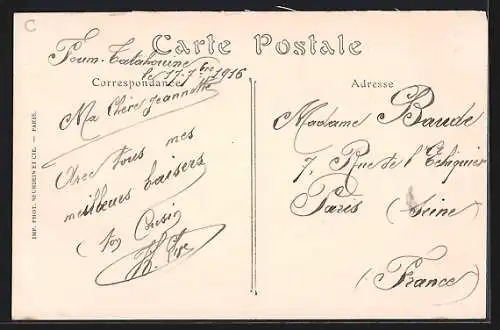 C
Carte Postale
Foum-Tatahouine
le 17-7bre 1916
Correspondance
Ma Chère Jeannette
Avec tous mes
meilleurs baisers
Ton Cousin
Adresse
Madame Baude
7, Rue de l'Echiquier
Paris (Seine)
(France)
IMP. PHOT. NEURDEIN ET CIE. — PARIS.